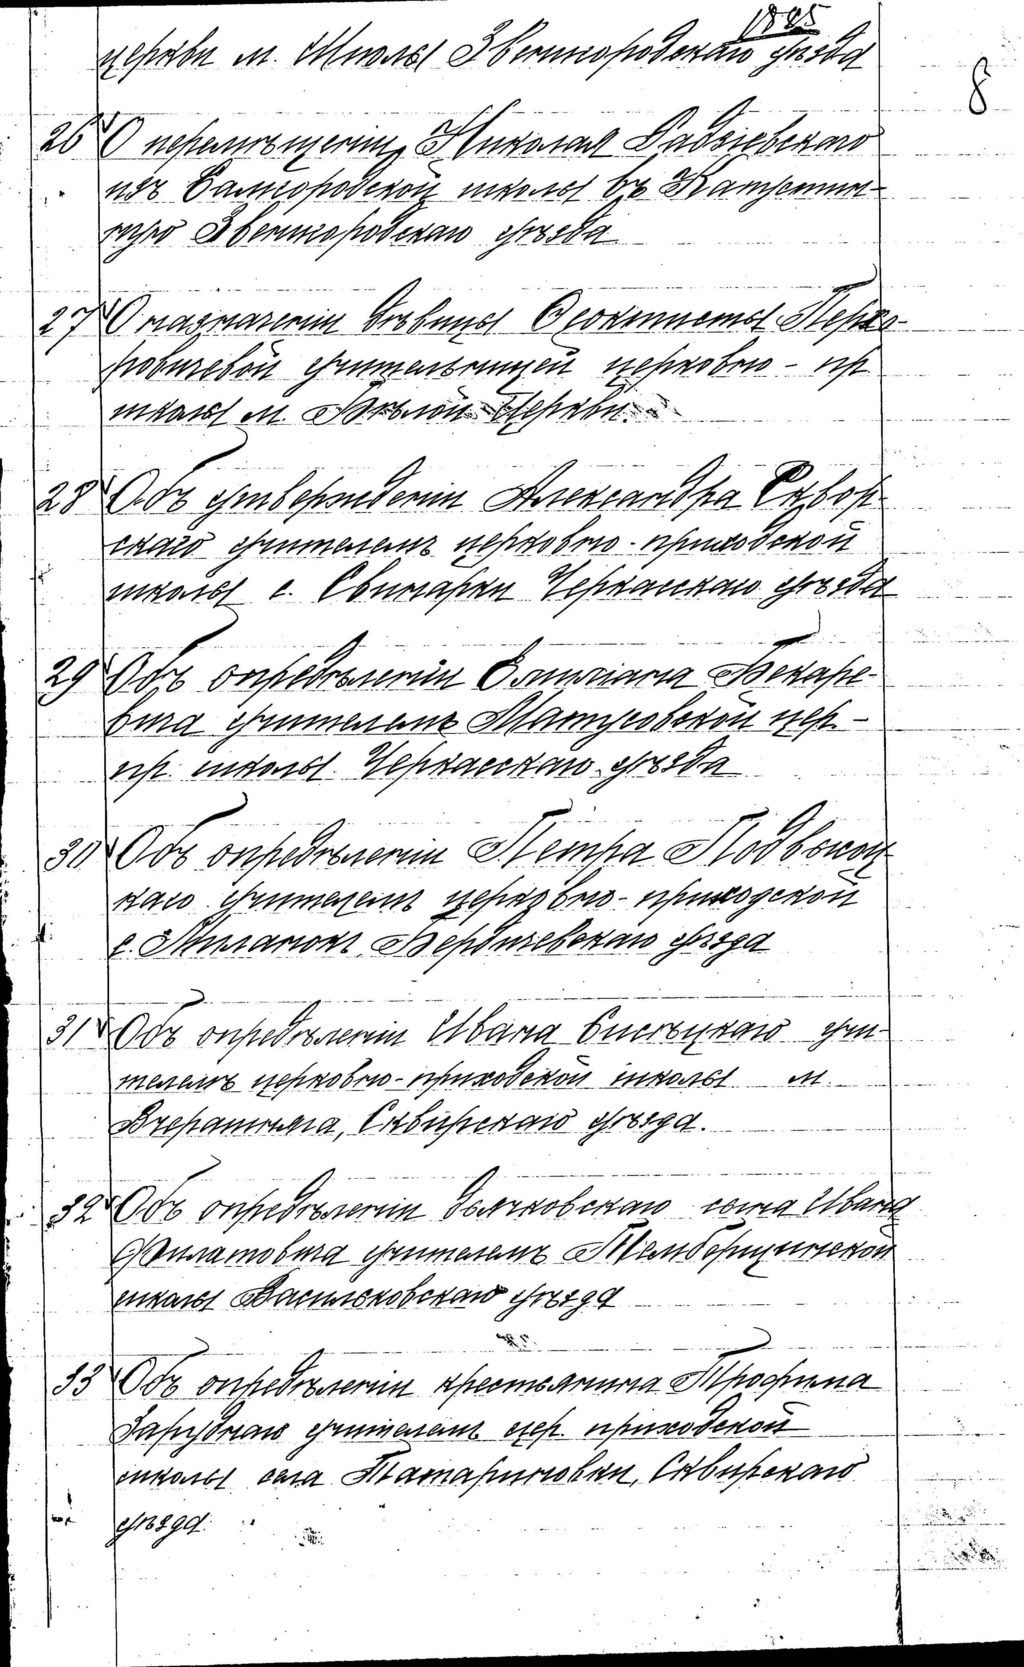 1885
церкви м. Шполы Звенигородскаго уѣзда
8
26 О перемѣщеніи Николая
изъ Самгородской школы въ
Звенигородскаго уѣзда
27 О назначеніи дѣвицы Ѳеоктисты Перко-
ровичевой учительницей церковно-пр.
школы м. Бѣлой-Церкви.
28 Объ утвержденіи Александра Сквор-
скаго учителемъ церковно-приходской
школы с. Свинарки Черкасскаго уѣзда
29 Объ опредѣленіи Емиліана Бекаре-
вича учителемъ Матусовской цер.-
пр. школы Черкасскаго уѣзда
30 Объ опредѣленіи Петра Подвысоц-
каго учителемъ церковно-приходской
с. Бердичевскаго уѣзда
31 Объ опредѣленіи Ивана учи-
телемъ церковно-приходской школы м.
Вчерайшаго, Сквирскаго уѣзда.
32 Объ опредѣленіи дьячковскаго сына Ивана
Филатовича учителемъ
школы Васильковскаго уѣзда
33 Объ опредѣленіи крестьянина Трофима
Заруднаго учителемъ цер. приходской
школы села Татариновки, Сквирскаго
уѣзда.